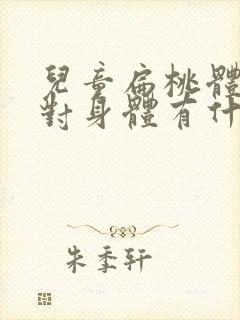 兒童扁桃體
對身體有什
朱季軒